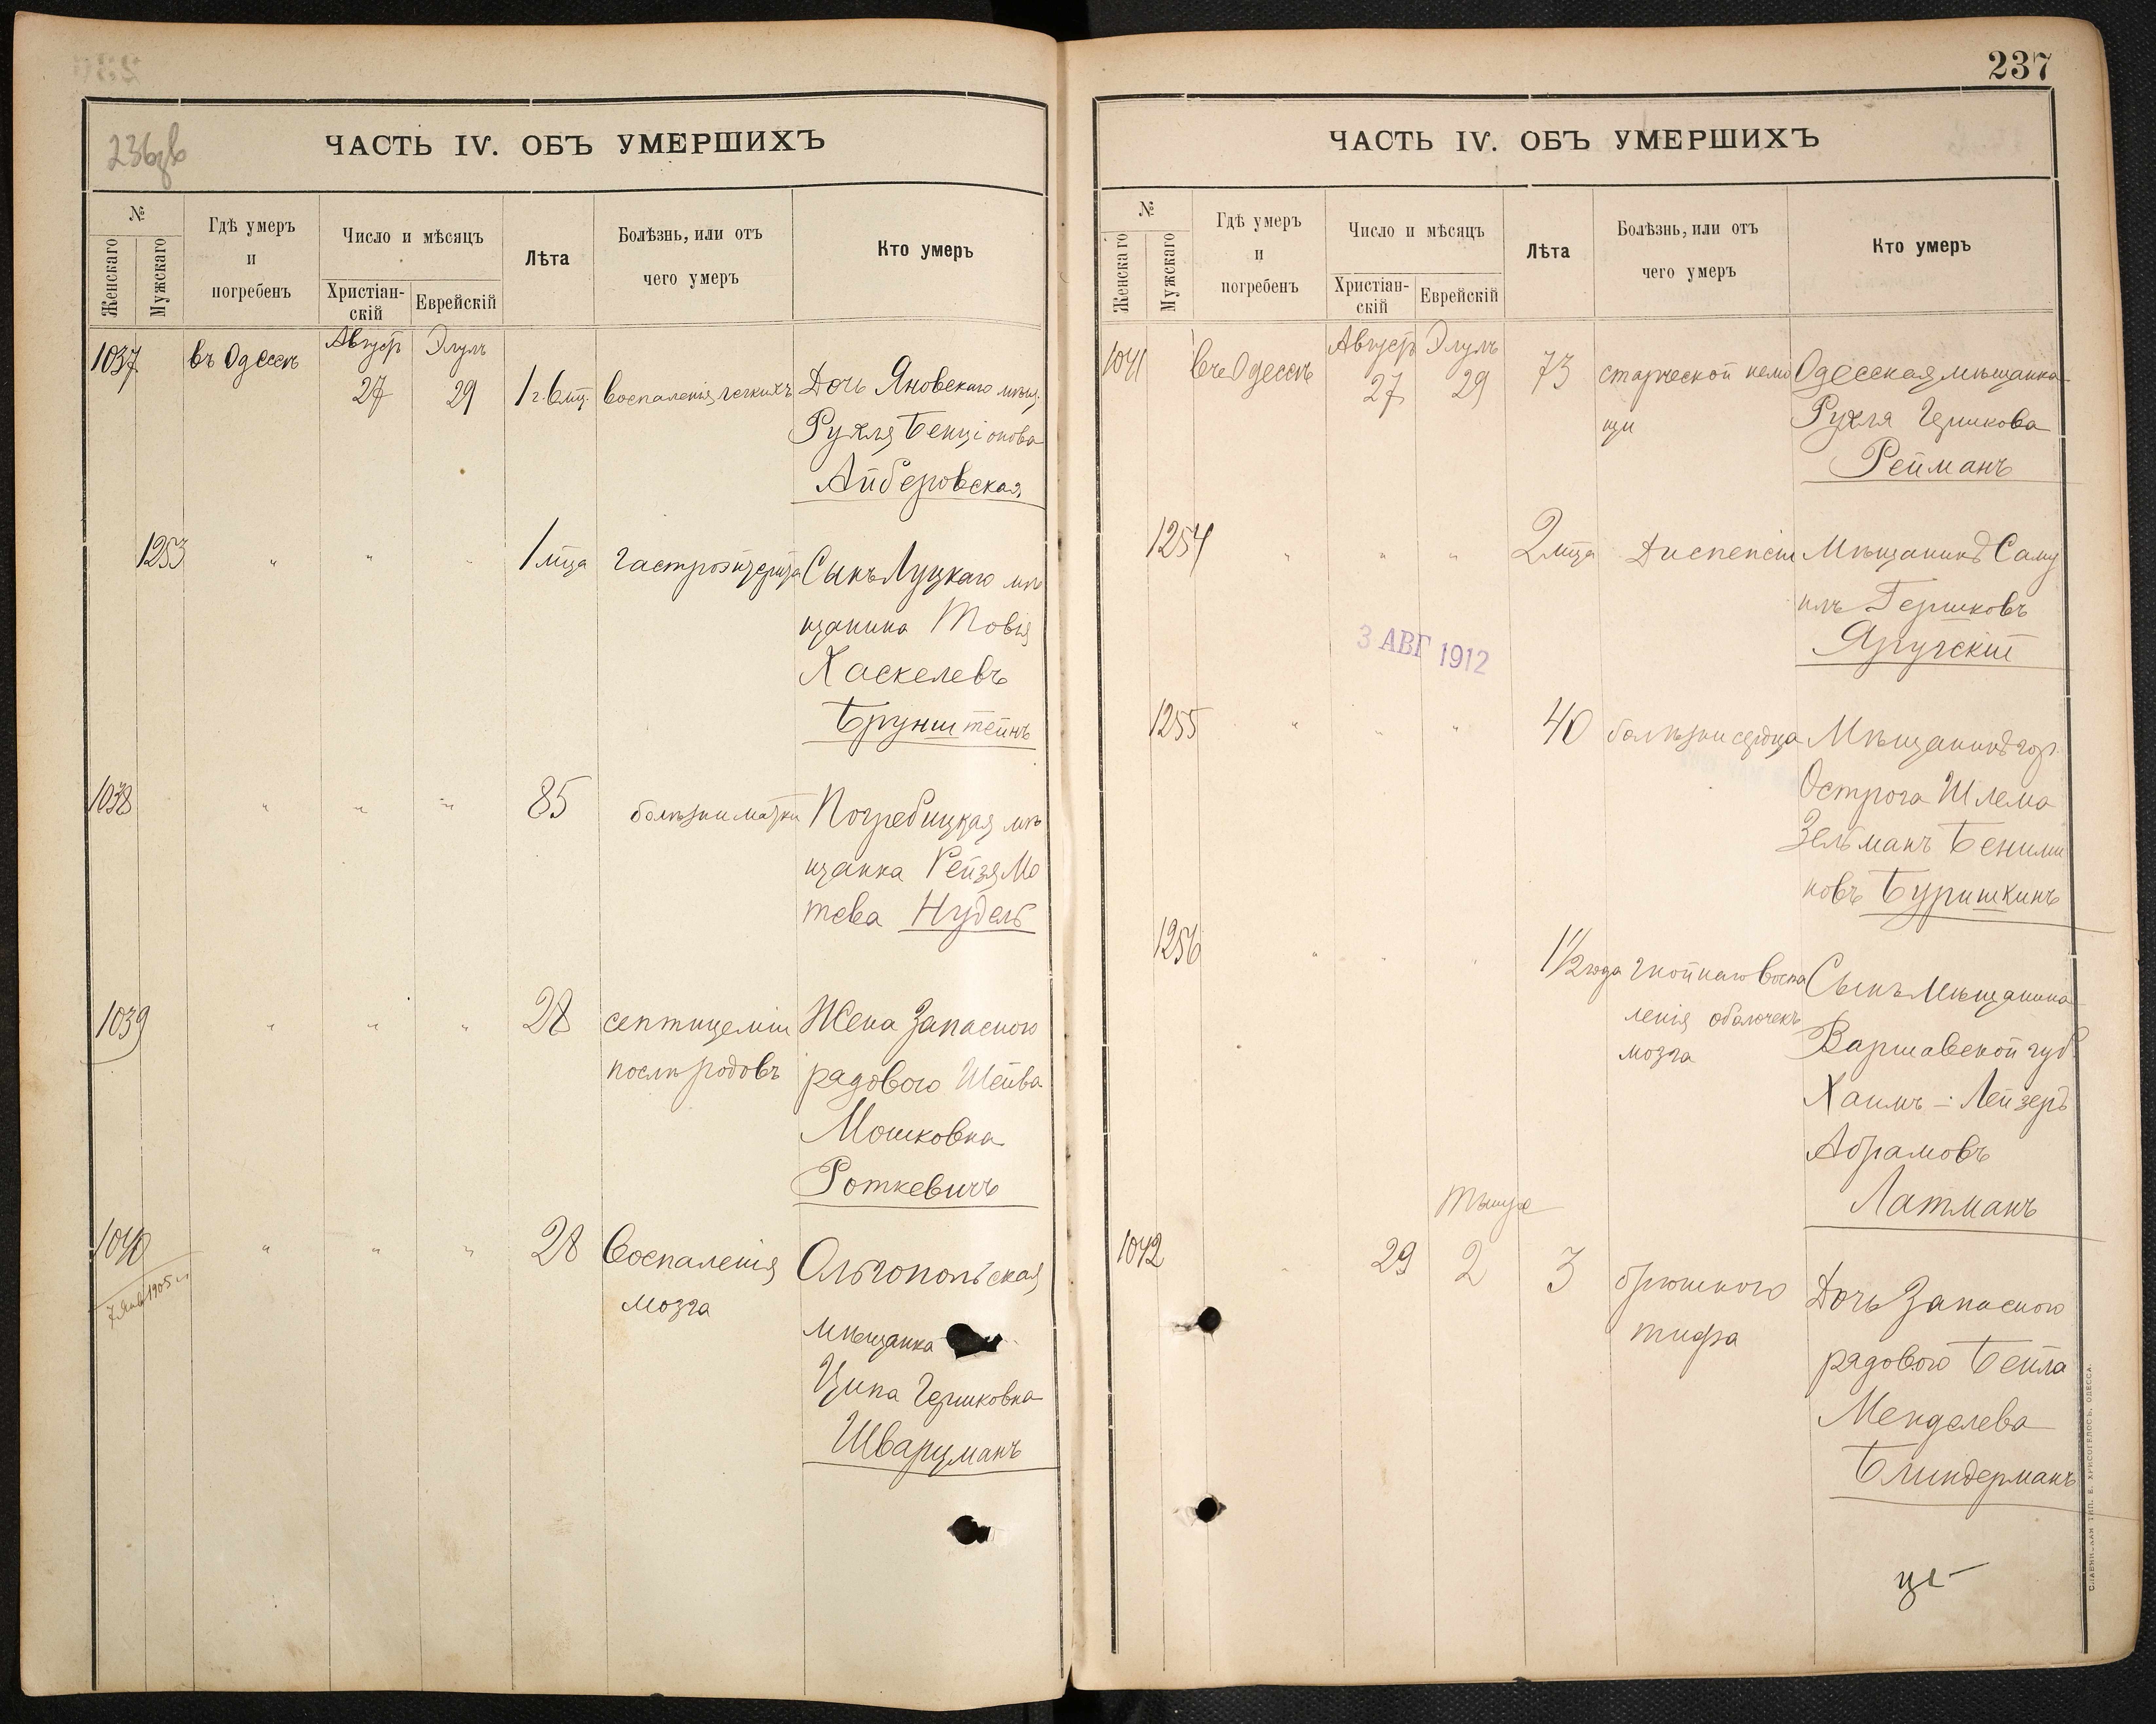 236зв
ЧАСТЬ IV. ОБЪ УМЕРШИХЪ
№
Женскаго
Мужскаго
Гдѣ умеръ
и
погребенъ
Число и мѣсяцъ
Христіан-
скій
Еврейскій
Лѣта
Болѣзнь, или отъ
чего умеръ
Кто умеръ
1037 въ Одессѣ Август 27 Элулъ 29 1 г. 6 мц. воспаленія легкихъ Дочь Яновскаго мѣщ.
Рухля Бенціонова
Айберовская
1253 " " " 1 мца гастроэнтерита Сынъ Луцкаго мѣ
щанина Товія
Хаскелевъ
Брунштейнъ
1038 " " " 85 болѣзни матки Погребищкая мѣ
щанка Рейзя Мо
тева Нудель
1039 " " " 28 септицеміи Жена Запасного
послѣ родовъ рядового Шейва
Мошковна
Роткевичъ
1040 " " " 28 Воспаленія Ольгопольская
7 Янв 1905 г.
мозга
мѣщанка
Ципа Гершковна
Шварцманъ
237
ЧАСТЬ IV. ОБЪ УМЕРШИХЪ
№
Женскаго
Мужскаго
Гдѣ умеръ
и
погребенъ
Число и мѣсяцъ
Христіан-
скій
Еврейскій
Лѣта
Болѣзнь, или отъ
чего умеръ
Кто умеръ
1041 въ Одессѣ Август 27 Элулъ 29 73 старческой немо Одесская мѣщанка
щи Рухля Гершкова
Рейманъ
1254 " " " 2 мца Диспепсіи Мѣщанинъ Саму
илъ Гершковъ
Яругскій
3 АВГ 1912
1255 " " " 40 болѣзни сердца Мѣщанинъ гор.
Острога Шлема
Зельманъ Бениами
новъ Буришкинъ
1256 " " " 1 1/2 года гнойнаго воспа Сынъ Мѣщанина
ленія оболочекъ Варшавской губ.
мозга
Хаимъ-Лейзеръ
Абрамовъ
Латманъ
Тишре
1042 " 29 2 3 брюшного Дочь Запасного
тифа рядового Бейла
Менделева
Блиндерманъ
СЛАВЯНСКАЯ ТИП. Е. ХРИСОГЕЛОСЪ, ОДЕССА.